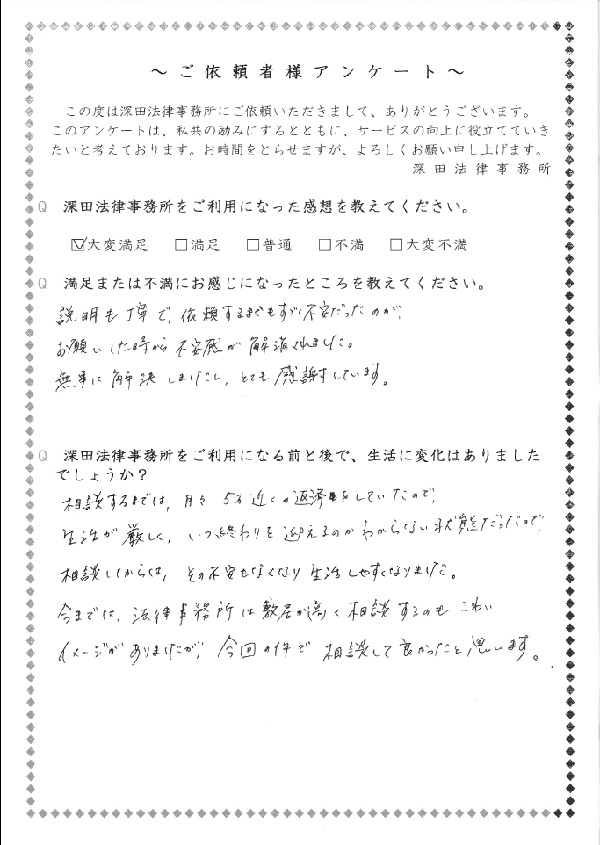 ～ご依頼者様アンケート～
この度は深田法律事務所にご依頼いただきまして、ありがとうございます。
このアンケートは、私共の励みにするとともに、サービスの向上に役立てていき
たいと考えております。お時間をとらせますが、よろしくお願い申し上げます。
深田法律事務所
Q 深田法律事務所をご利用になった感想を教えてください。
☑大変満足 □満足 □普通 □不満 □大変不満
Q 満足または不満にお感じになったところを教えてください。
説明も丁寧で、依頼するまでもすごい不安だったのが、
お願いした時から不安感が解消されました。
無事に解決しましたし、とても感謝しています。
Q 深田法律事務所をご利用になる前と後で、生活に変化はありました
でしょうか？
相談するまでは、月々5万近くの返済をしていたので、
生活が厳しく、いつ終わりを迎えるのかわからない状態だったので、
相談してからは、その不安もなくなり生活しやすくなりました。
今までは、法律事務所は敷居が高く相談するのもこわい
イメージがありましたが、今回の件で相談して良かったと思います。